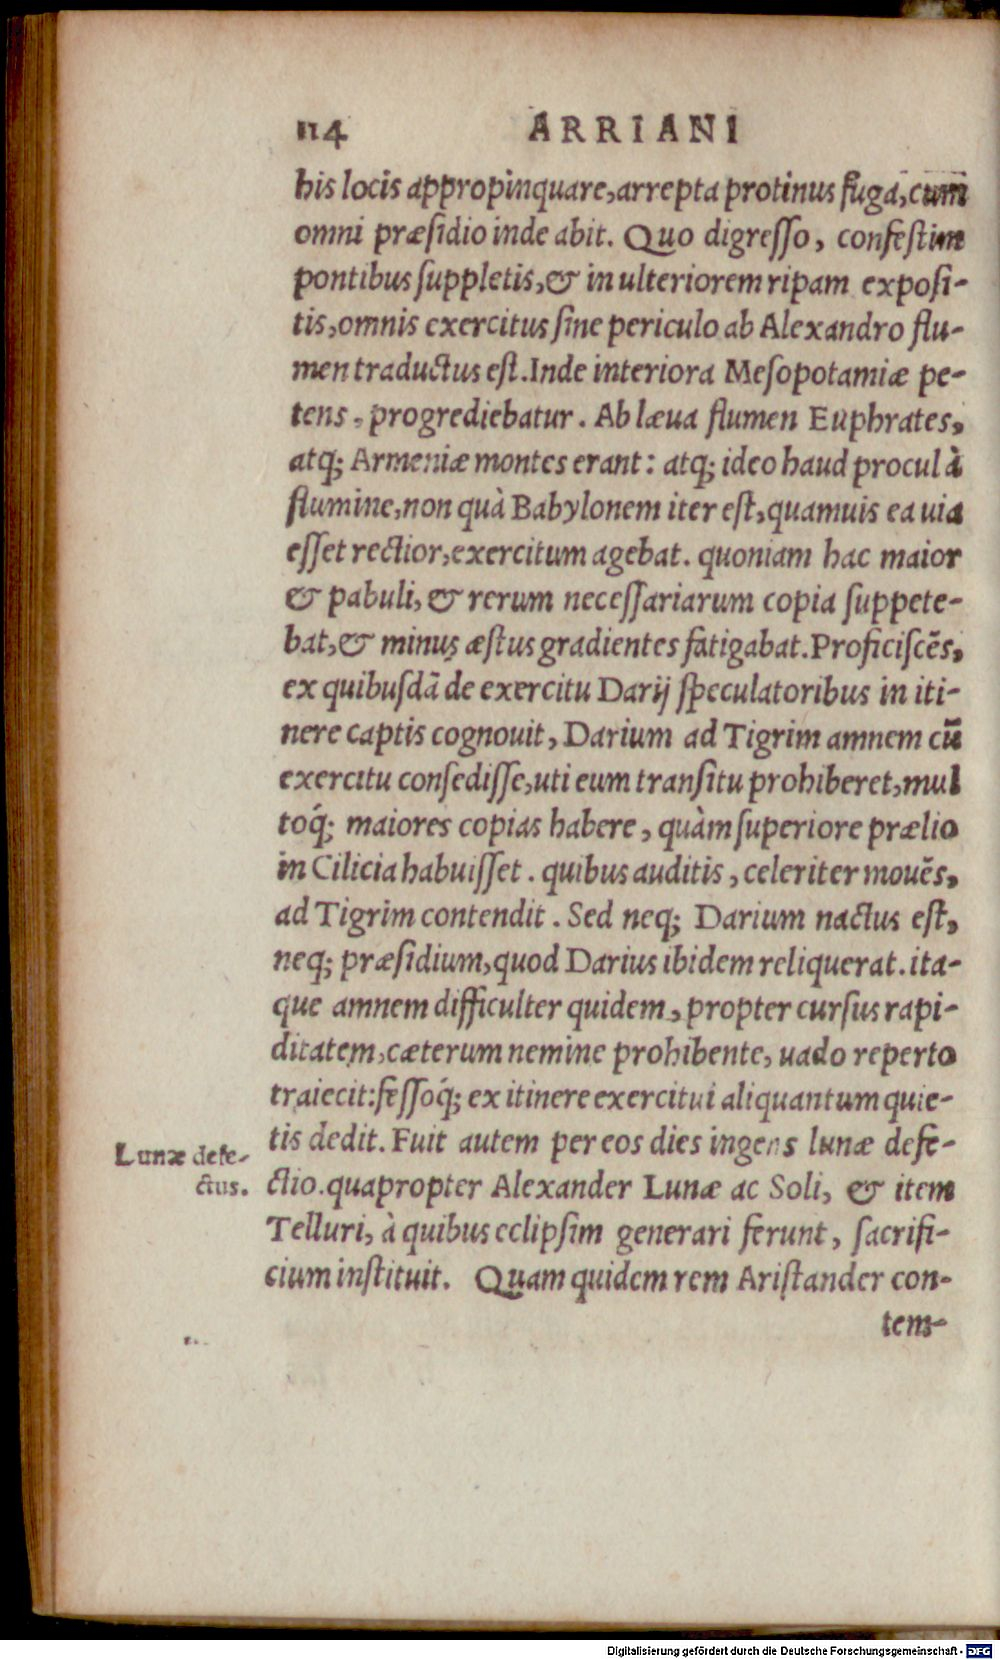 114 ARRIANI
his locis appropinquare, arrepta protinus fuga, cum
omni præſidio inde abit. Quo digreſſo, confeſtim
pontibus ſuppletis, & in ulteriorem ripam expoſi-
tis, omnis exercitus ſine periculo ab Alexandro flu-
men traductus eſt. Inde interiora Meſopotamiæ pe-
tens, progrediebatur. Ab læua flumen Euphrates,
atq; Armeniæ montes erant: atq; ideo haud procul à
flumine, non quà Babylonem iter eſt, quamuis ea uia
eſſet rectior, exercitum agebat. quoniam hac maior
& pabuli, & rerum neceſſariarum copia ſuppete-
bat, & minus æſtus gradientes fatigabat. Proficiſcẽs,
ex quibuſdã de exercitu Darij ſpeculatoribus in iti-
nere captis cognouit, Darium ad Tigrim amnem cũ
exercitu conſediſſe, uti eum tranſitu prohiberet, mul
toq́; maiores copias habere, quàm ſuperiore prælio
in Cilicia habuiſſet. quibus auditis, celeriter mouẽs,
ad Tigrim contendit. Sed neq; Darium nactus eſt,
neq; præſidium, quod Darius ibidem reliquerat. ita-
que amnem difficulter quidem, propter curſus rapi-
ditatem, cæterum nemine prohibente, uado reperto
traiecit: feſſoq́; ex itinere exercitui aliquantum quie-
tis dedit. Fuit autem per eos dies ingens lunæ defe-
Lunæ defe-
ctio. quapropter Alexander Lunæ ac Soli, & item
ctus.
Telluri, à quibus eclipſim generari ferunt, ſacrifi-
cium inſtituit. Quam quidem rem Ariſtander con-
tem-
Digitalisierung gefördert durch die Deutsche Forschungsgemeinschaft - DFG